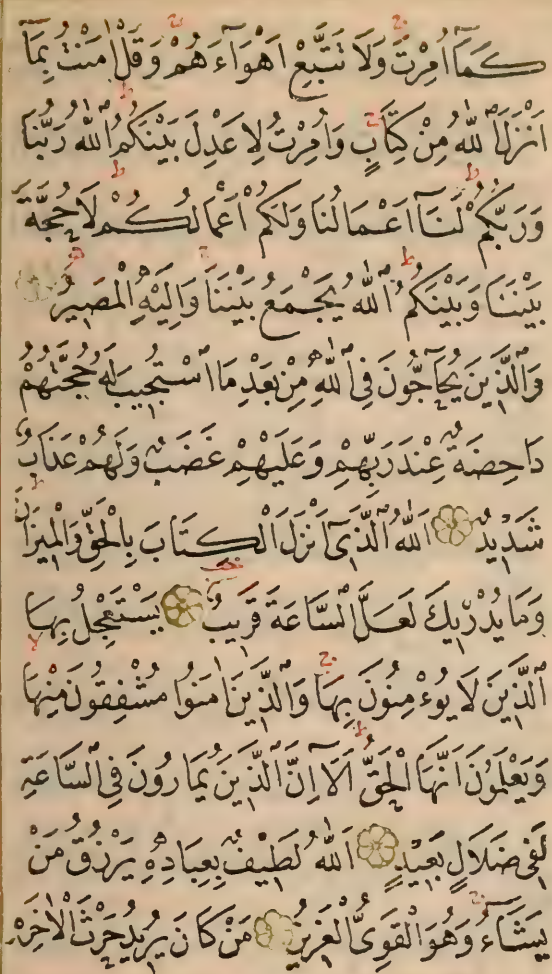 كَمَآ اُمِرْتَ وَلَا تَتَّبِعْ اَهْوَآءَهُمْ وَقُلْ اٰمَنْتُ بِمَآ
اَنْزَلَ اللّٰهُ مِنْ كِتَابٍ وَاُمِرْتُ لِاَعْدِلَ بَيْنَكُمُ اَللّٰهُ رَبُّنَا
وَرَبُّكُمْ لَنَآ اَعْمَالُنَا وَلَكُمْ اَعْمَالُكُمْ لَا حُجَّةَ
بَيْنَنَا وَبَيْنَكُمُ اَللّٰهُ يَجْمَعُ بَيْنَنَا وَاِلَيْهِ الْمَصِيرُ
وَالَّذِينَ يُحَآجُّونَ فِى اللّٰهِ مِنْ بَعْدِ مَا اسْتُجِيبَ لَهُ حُجَّتُهُمْ
دَاحِضَةٌ عِنْدَ رَبِّهِمْ وَعَلَيْهِمْ غَضَبٌ وَلَهُمْ عَذَابٌ
شَدِيدٌ اَللّٰهُ الَّذِىٓ اَنْزَلَ الْكِتَابَ بِالْحَقِّ وَالْمِيزَانَ
وَمَا يُدْرِيكَ لَعَلَّ السَّاعَةَ قَرِيبٌ يَسْتَعْجِلُ بِهَا
الَّذِينَ لَا يُؤْمِنُونَ بِهَا وَالَّذِينَ اٰمَنُوا مُشْفِقُونَ مِنْهَا
وَيَعْلَمُونَ اَنَّهَا الْحَقُّ اَلَآ اِنَّ الَّذِينَ يُمَارُونَ فِى السَّاعَةِ
لَفِى ضَلَالٍ بَعِيدٍ اَللّٰهُ لَطِيفٌ بِعِبَادِهِ يَرْزُقُ مَنْ
يَشَآءُ وَهُوَ الْقَوِىُّ الْعَزِيزُ مَنْ كَانَ يُرِيدُ حَرْثَ الْاٰخِرَةِ